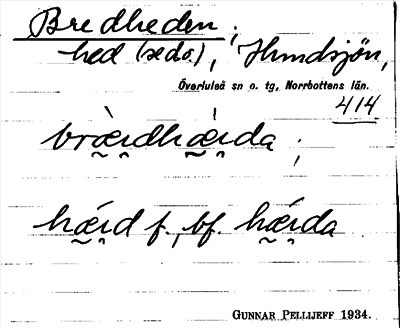 Bredheden ;
hed (se d.o.), Hundsjön,
Överluleå sn o. tg, Norrbottens län.
414
bràɪ̯dhàɪ̯da ;
hǽɪ̯d f., bf. hǽɪ̯da
GUNNAR PELLIJEFF 1934.